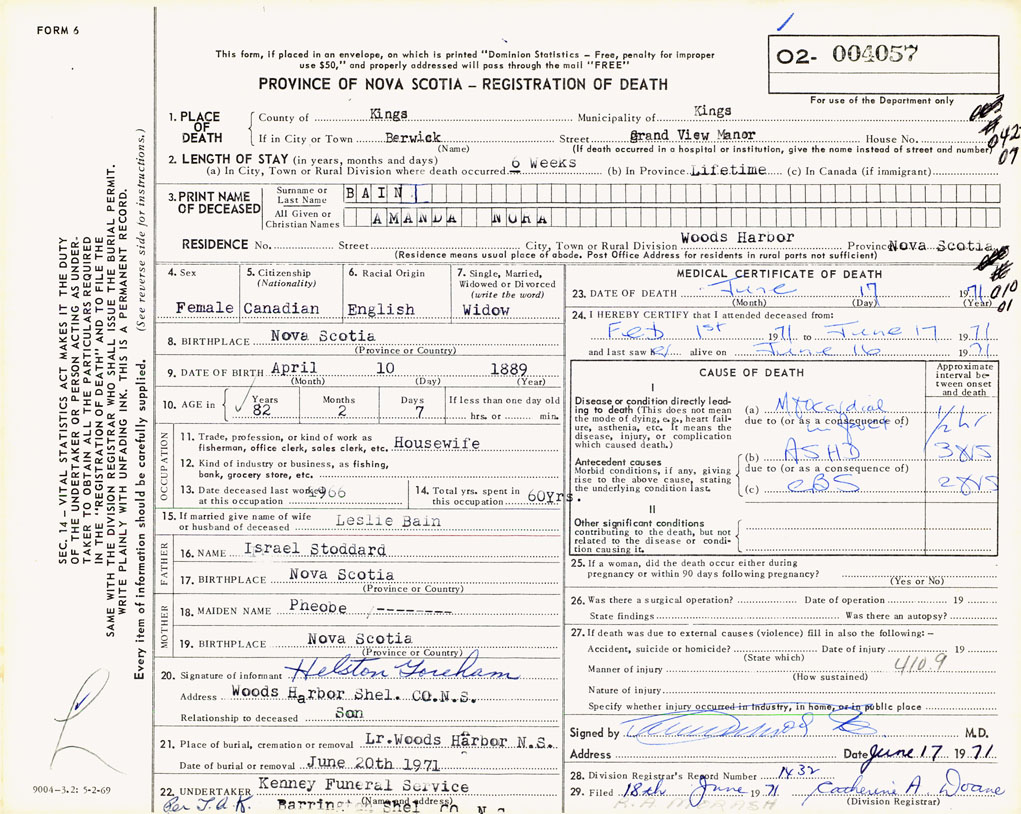 FORM 6
This form, if placed in an envelope, on which is printed "Dominion Statistics – Free, penalty for improper
use $50," and properly addressed will pass through the mail "FREE"
PROVINCE OF NOVA SCOTIA – REGISTRATION OF DEATH
O2- 004057
For use of the Department only
1. PLACE OF DEATH
County of Kings Municipality of Kings
If in City or Town Berwick Street Grand View Manor House No.
(Name) (If death occurred in a hospital or institution, give the name instead of street and number)
042
07
2. LENGTH OF STAY (in years, months and days)
(a) In City, Town or Rural Division where death occurred 6 Weeks (b) In Province Lifetime (c) In Canada (if immigrant)
3. PRINT NAME OF DECEASED
Surname or Last Name BAIN
All Given or Christian Names AMANDA NORA
RESIDENCE No. Street City, Town or Rural Division Woods Harbor Province Nova Scotia
(Residence means usual place of abode. Post Office Address for residents in rural parts not sufficient)
010
01
4. Sex Female
5. Citizenship (Nationality) Canadian
6. Racial Origin English
7. Single, Married, Widowed or Divorced (write the word) Widow
8. BIRTHPLACE Nova Scotia
(Province or Country)
9. DATE OF BIRTH April 10 1889
(Month) (Day) (Year)
10. AGE in Years 82 Months 2 Days 7 If less than one day old hrs. or min.
OCCUPATION
11. Trade, profession, or kind of work as
fisherman, office clerk, sales clerk, etc. Housewife
12. Kind of industry or business, as fishing,
bank, grocery store, etc.
13. Date deceased last worked at this occupation 1966
14. Total yrs. spent in this occupation 60Yrs.
15. If married give name of wife
or husband of deceased Leslie Bain
FATHER
16. NAME Israel Stoddard
17. BIRTHPLACE Nova Scotia
(Province or Country)
MOTHER
18. MAIDEN NAME Pheobe --------
19. BIRTHPLACE Nova Scotia
(Province or Country)
20. Signature of informant Helston Goreham
Address Woods Harbor Shel. CO.N.S.
Relationship to deceased Son
21. Place of burial, cremation or removal Lr.Woods Harbor N.S.
Date of burial or removal June 20th 1971
22. UNDERTAKER Kenney Funeral Service
(Name and address)
Per J.A.K. Barrington Shel Co N.S.
MEDICAL CERTIFICATE OF DEATH
23. DATE OF DEATH June 17 1971
(Month) (Day) (Year)
24. I HEREBY CERTIFY that I attended deceased from:
Feb 1st 1971 to June 17 1971
and last saw alive on June 16 1971
CAUSE OF DEATH
Approximate interval between onset and death
I
Disease or condition directly leading to death (This does not mean the mode of dying, e.g., heart failure, asthenia, etc. It means the disease, injury, or complication which caused death.)
(a) Myocardial Infarct 1/2 hr
due to (or as a consequence of)
Antecedent causes
Morbid conditions, if any, giving rise to the above cause, stating the underlying condition last.
(b) ASHD 3 yrs
due to (or as a consequence of)
(c) CBS 2 yrs
II
Other significant conditions
contributing to the death, but not related to the disease or condition causing it.
25. If a woman, did the death occur either during
pregnancy or within 90 days following pregnancy?
(Yes or No)
26. Was there a surgical operation? Date of operation 19
State findings Was there an autopsy?
27. If death was due to external causes (violence) fill in also the following: –
Accident, suicide or homicide? Date of injury 19
(State which)
410.9
Manner of injury
(How sustained)
Nature of injury
Specify whether injury occurred in Industry, in home, or in public place
Signed by M.D.
Address Date June 17 1971
28. Division Registrar's Record Number 1432
29. Filed 18th June 1971 Catherine A. Doane
(Division Registrar)
SEC. 14 – VITAL STATISTICS ACT MAKES IT THE DUTY
OF THE UNDERTAKER OR PERSON ACTING AS UNDER-
TAKER TO OBTAIN ALL THE PARTICULARS REQUIRED
IN THE "REGISTRATION OF DEATH" AND TO FILE THE
SAME WITH THE DIVISION REGISTRAR WHO SHALL ISSUE THE BURIAL PERMIT.
WRITE PLAINLY WITH UNFADING INK. THIS IS A PERMANENT RECORD.
Every item of information should be carefully supplied. (See reverse side for instructions.)
9004-3.2: 5-2-69